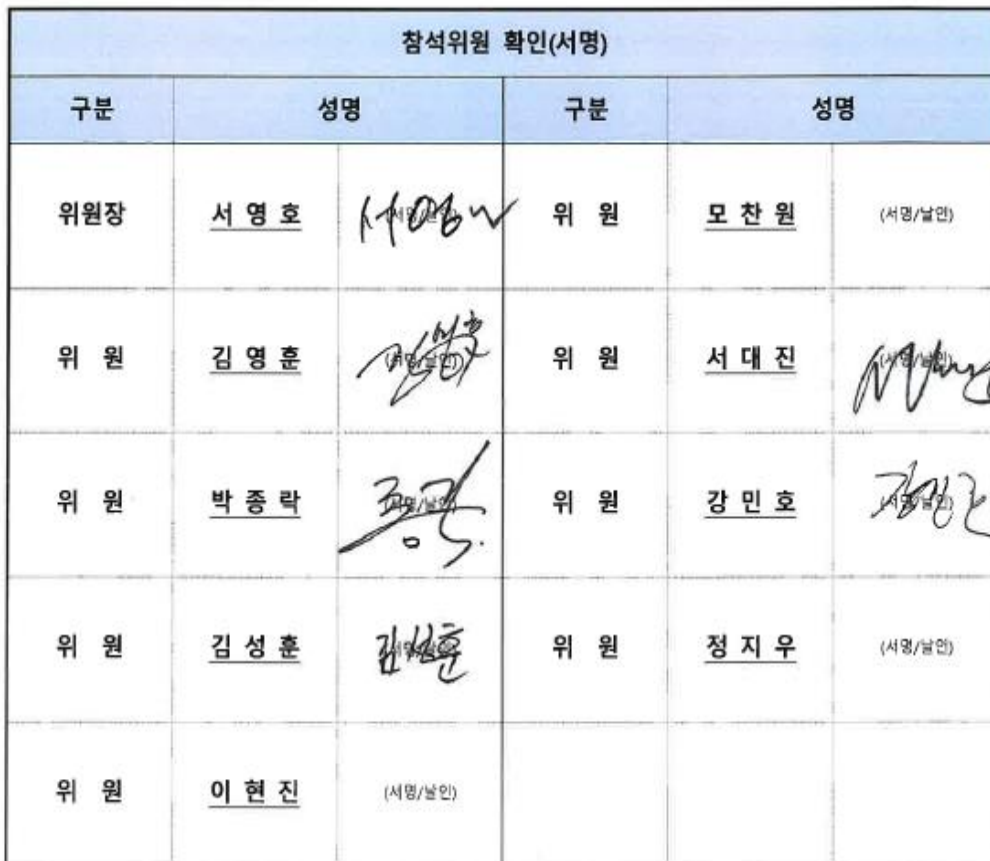 참석위원 확인(서명)
구분 성명 구분 성명
위원장 서 영 호 서영호 (서명/날인) 위 원 모 찬 원 (서명/날인)
위 원 김 영 훈 (서명/날인) 위 원 서 대 진 (서명/날인)
위 원 박 종 락 (서명/날인) 위 원 강 민 호 (서명/날인)
위 원 김 성 훈 김성훈 (서명/날인) 위 원 정 지 우 (서명/날인)
위 원 이 현 진 (서명/날인)